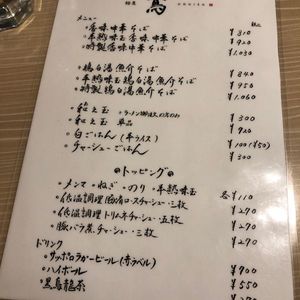 麺屋
メニュー 税込
・香味中華そば ¥810
・半熟味玉香味中華そば ¥920
・特製香味中華そば ¥1.030
・鶏白湯魚介そば ¥840
・半熟味玉鶏白湯魚介そば ¥950
・特製鶏白湯魚介そば ¥1.060
・和え玉 ¥300
・和え玉 単品 ¥920
・白ごはん (半ライス) ¥100(¥50)
・チャーシューごはん ¥300
トッピング
・メンマ ・ねぎ ・のり ・半熟味玉 各¥110
・低温調理 チャーシュー・三枚 ¥270
・低温調理 チャーシュー・五枚 ¥270
・豚バラ煮チャーシュー・三枚 ¥270
ドリンク
・サッポロラガービール(赤ラベル) ¥700
・ハイボール ¥550
・黒烏龍茶 ¥270